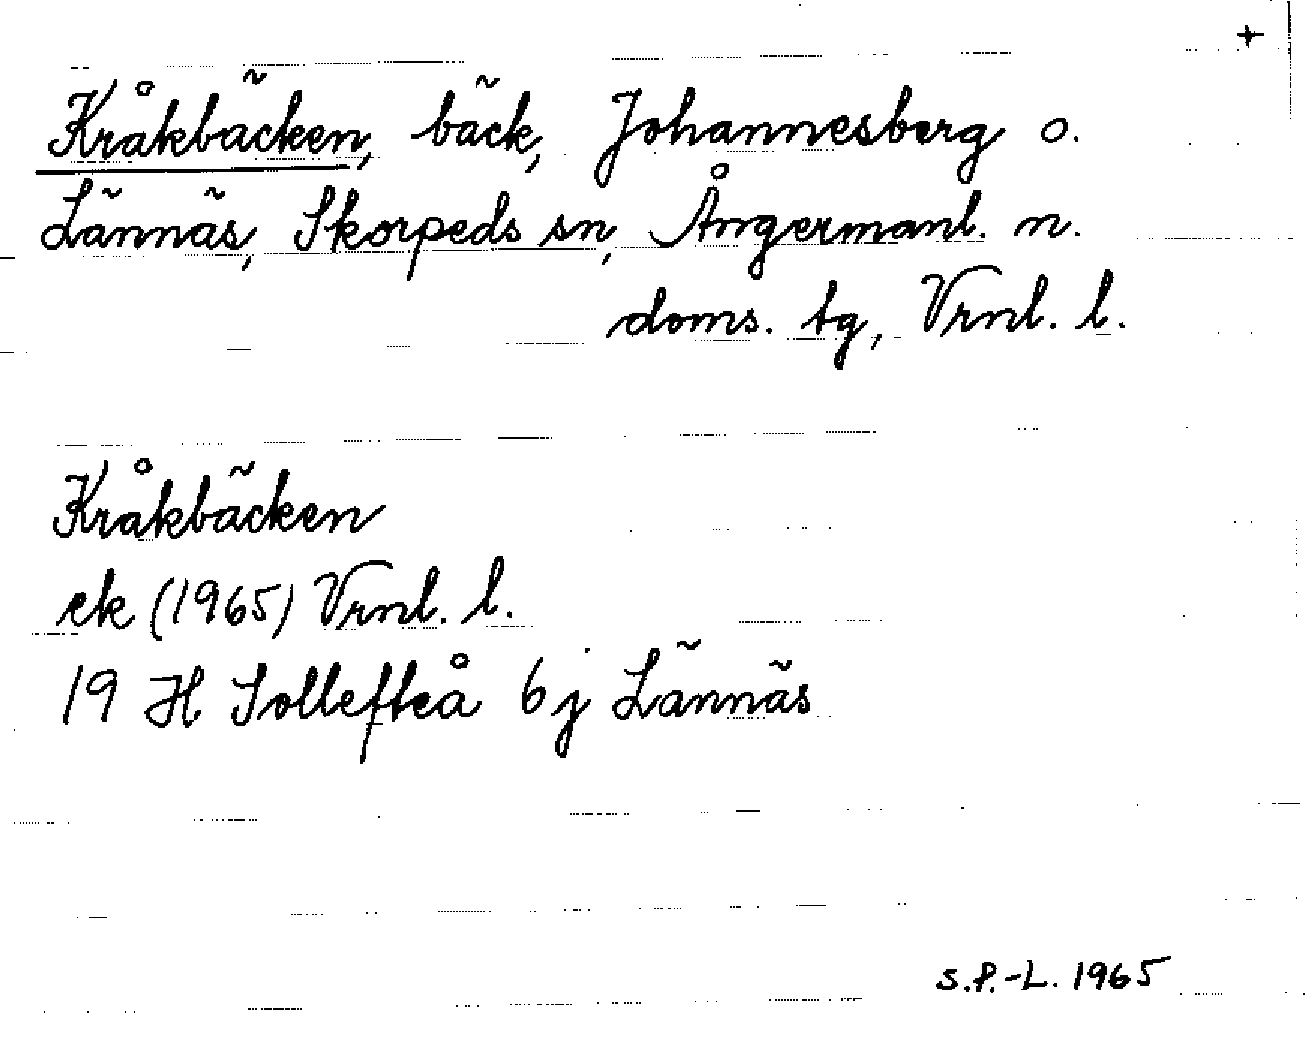 +
Kråkbäcken, bäck, Johannesberg o.
Lännäs, Skorpeds sn, Ångermanl. n.
doms. tg, Vrnl. l.
Kråkbäcken
ek (1965) Vrnl. l.
19 H Sollefteå 6j Lännäs
S.P.-L. 1965